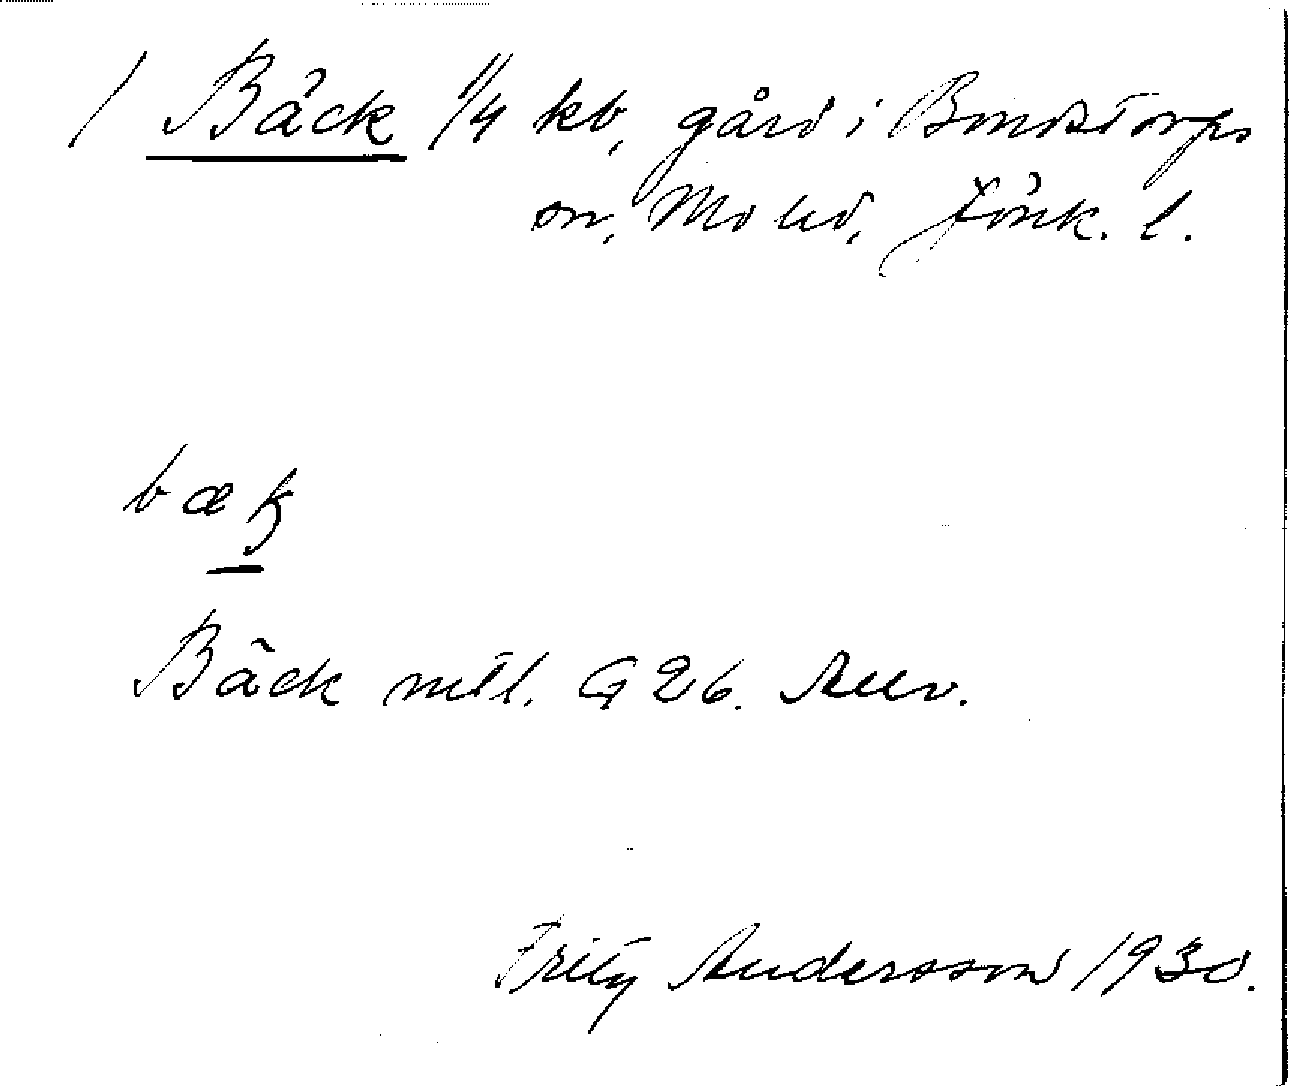 1 Bäck 1/4 kb, gård i Bondstorps
sn, Mo hd, Jönk. l.
bæk
Bäck mtl. G 26.
Fritz Andersson 1930.